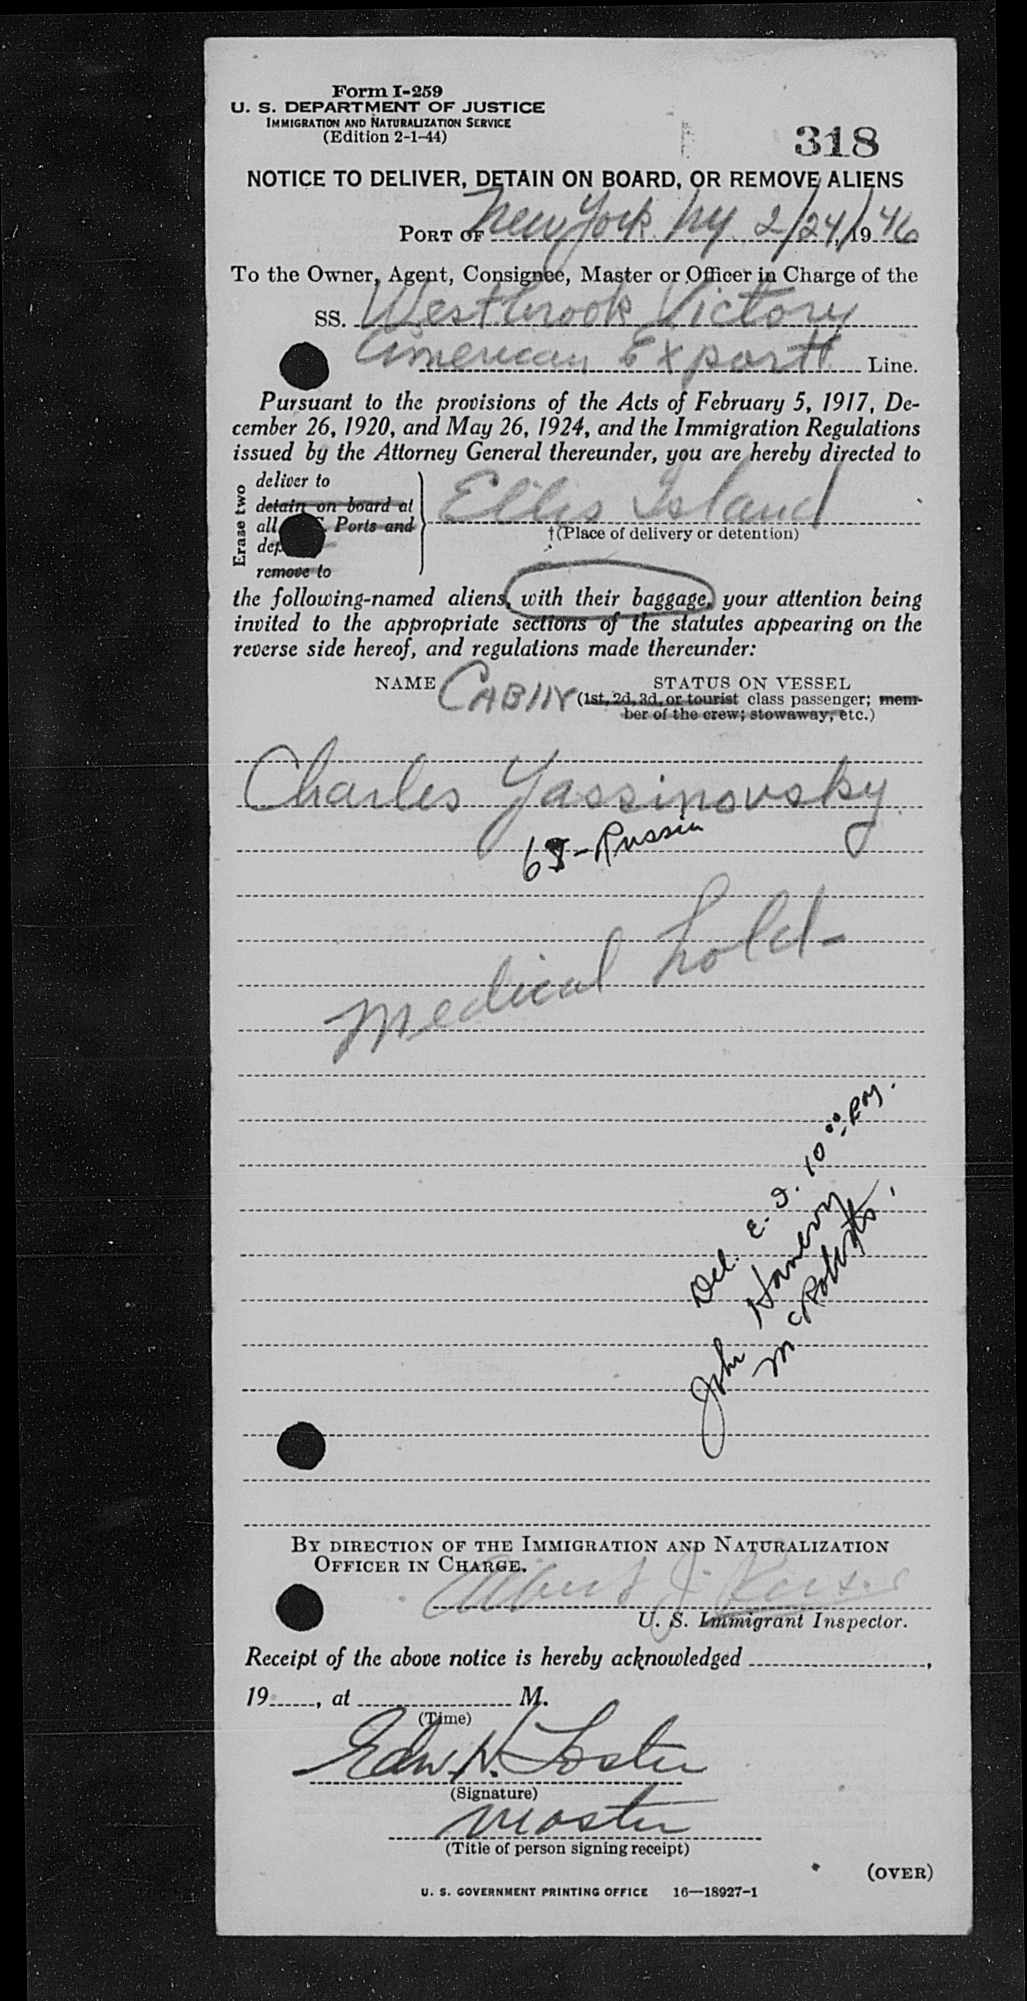 Form I-259
U. S. DEPARTMENT OF JUSTICE
IMMIGRATION AND NATURALIZATION SERVICE
(Edition 2-1-44)
318
NOTICE TO DELIVER, DETAIN ON BOARD, OR REMOVE ALIENS
PORT OF New York Ny 2/24/1946
To the Owner, Agent, Consignee, Master or Officer in Charge of the
SS. Westbrook Victory
American Export Line.
Pursuant to the provisions of the Acts of February 5, 1917, De-
cember 26, 1920, and May 26, 1924, and the Immigration Regulations
issued by the Attorney General thereunder, you are hereby directed to
Erase two
deliver to
detain on board at
all Ports and
remove to
Ellis Island
†(Place of delivery or detention)
the following-named aliens, with their baggage, your attention being
invited to the appropriate sections of the statutes appearing on the
reverse side hereof, and regulations made thereunder:
NAME CABIN STATUS ON VESSEL
(1st, 2d, 3d, or tourist class passenger; mem-
ber of the crew; stowaway, etc.)
Charles Yassinovsky
Russia
Medical hold-
Del. E. I. 10:00 PM.
John
BY DIRECTION OF THE IMMIGRATION AND NATURALIZATION
OFFICER IN CHARGE.
Albert J.
U. S. Immigrant Inspector.
Receipt of the above notice is hereby acknowledged ,
19 , at M.
(Time)
Edw. N. Foster
(Signature)
Master
(Title of person signing receipt)
(OVER)
U. S. GOVERNMENT PRINTING OFFICE 16—18927-1